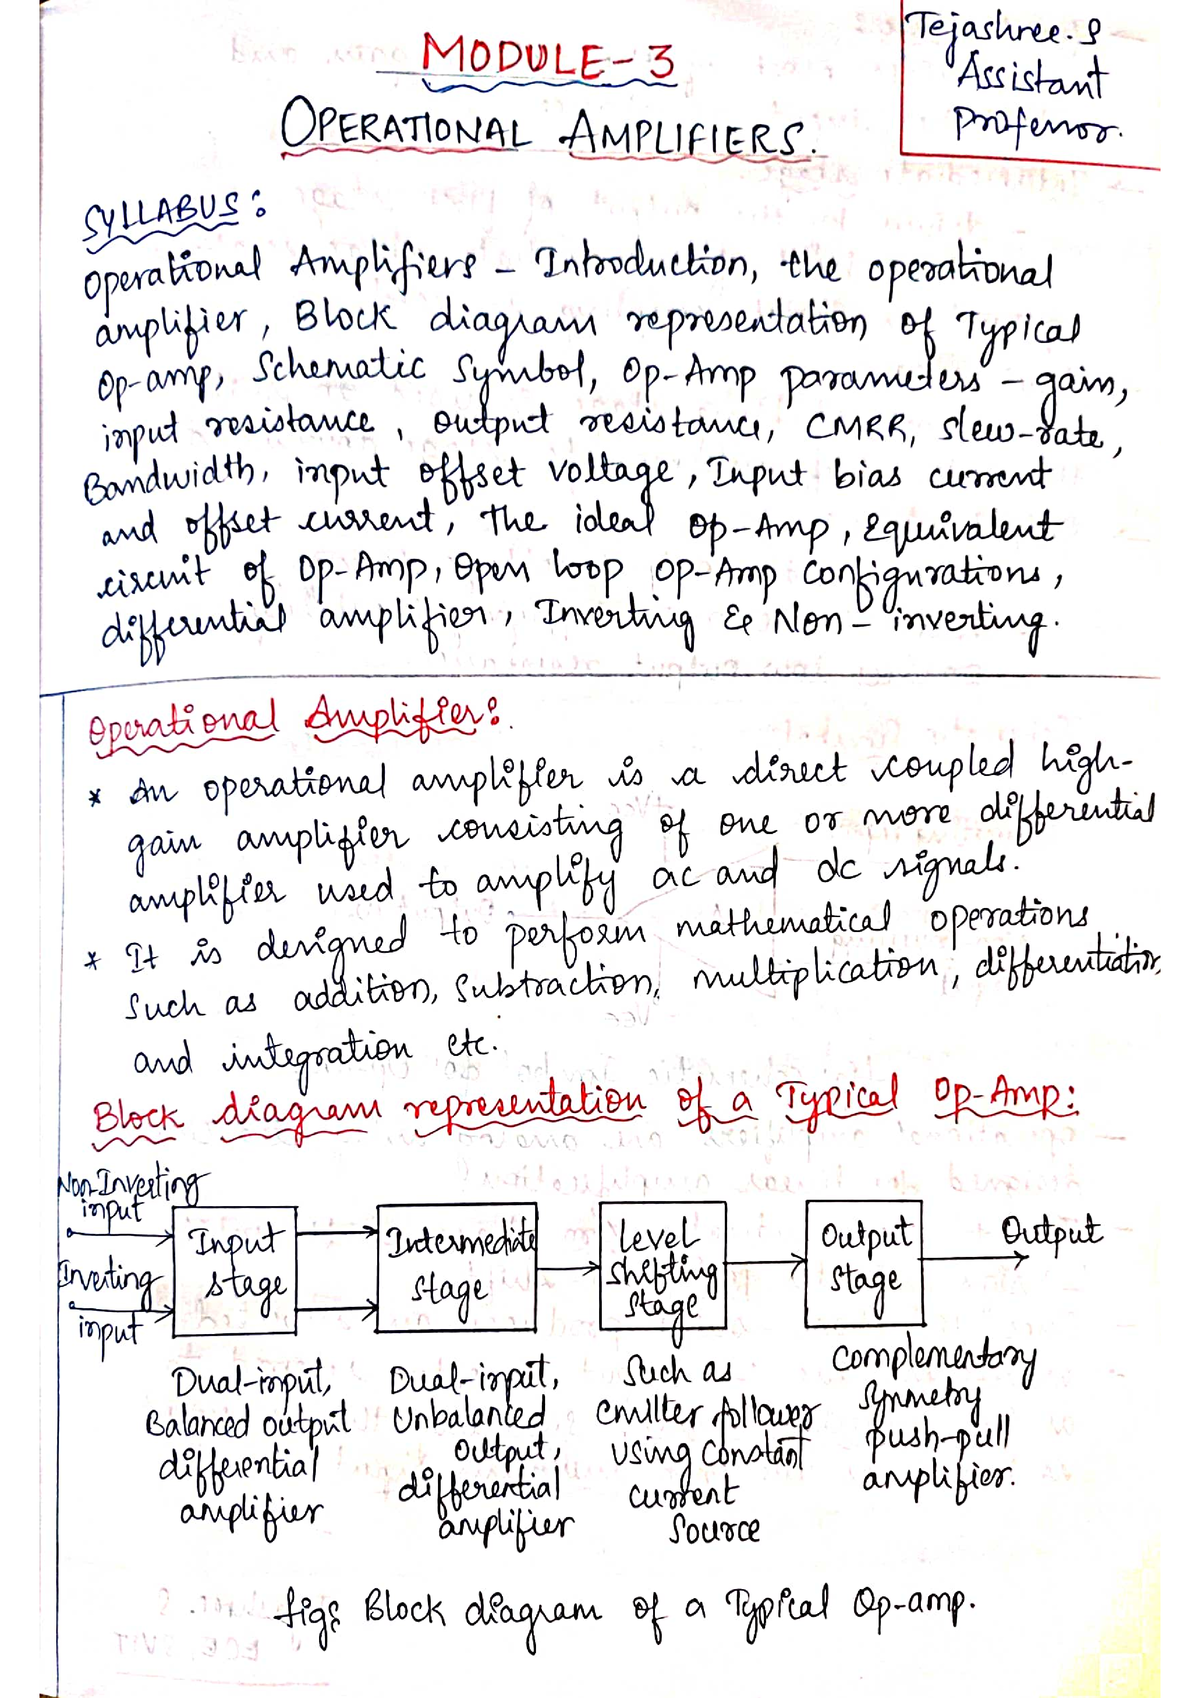 Tejashree. S
Assistant
Professor.
MODULE-3
OPERATIONAL AMPLIFIERS.
SYLLABUS:
Operational Amplifiers - Introduction, the operational
amplifier, Block diagram representation of Typical
Op-amp, Schematic Symbol, Op-Amp parameters - gain,
input resistance, output resistance, CMRR, slew-rate,
Bandwidth, input offset voltage, Input bias current
and offset current, The ideal Op-Amp, Equivalent
circuit of Op-Amp, Open loop Op-Amp configurations,
differential amplifier, Inverting & Non-inverting.
Operational Amplifier:
* An operational amplifier is a direct coupled high-
gain amplifier consisting of one or more differential
amplifier used to amplify ac and dc signals.
* It is designed to perform mathematical operations
Such as addition, Subtraction, multiplication, differentiation,
and integration etc.
Block diagram representation of a Typical Op-Amp:
Non-Inverting
input
Inverting
input
Input
stage
Intermediate
stage
Level
shifting
stage
Output
stage
Output
Dual-input,
Balanced output
differential
amplifier
Dual-input,
Unbalanced
output,
differential
amplifier
Such as
emitter follower
using constant
current
source
Complementary
Symmetry
push-pull
amplifier.
fig: Block diagram of a Typical Op-amp.